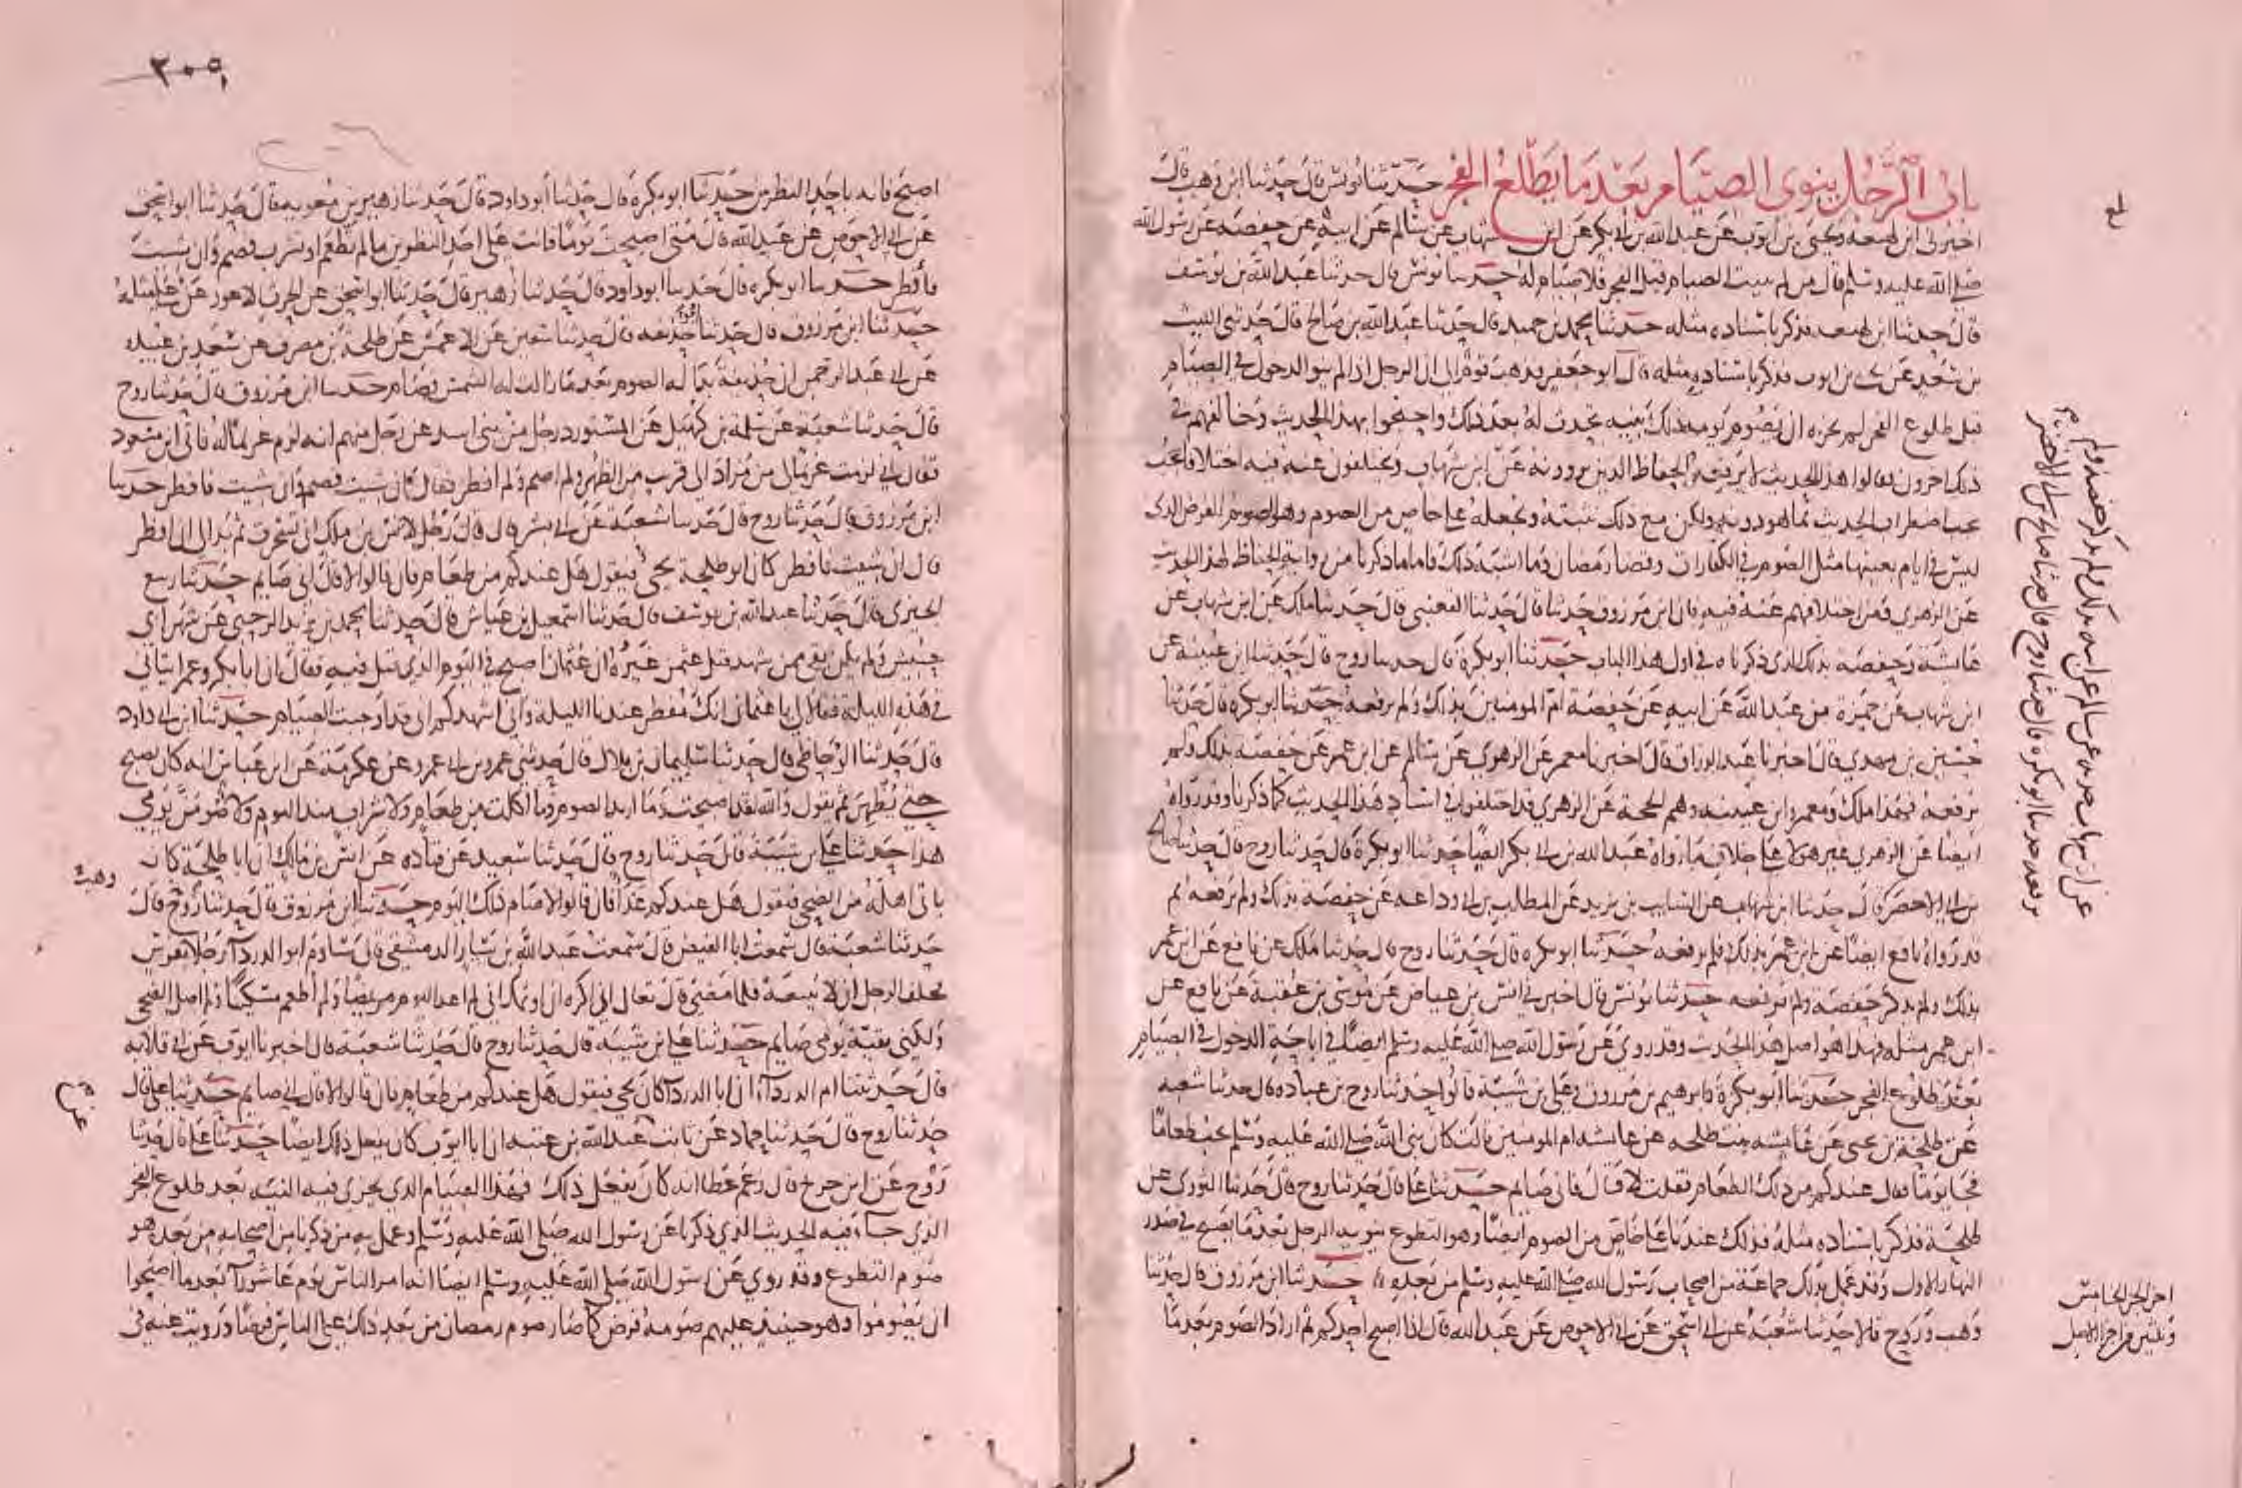 باب الرجل ينوي الصيام بعد ما يطلع الفجر حدثنا يونس قال حدثنا ابن وهب قال
اخبرني ابن لهيعة ويحيى بن ايوب عن عبد الله بن ابي بكر عن ابن شهاب عن سالم عن ابيه عن حفصة عن رسول الله
صلى الله عليه وسلم قال من لم يبيت الصيام قبل الفجر فلا صيام له حدثنا يونس قال حدثنا عبد الله بن يوسف
قال حدثنا ابن لهيعة فذكر باسناده مثله حدثنا محمد بن حميد قال حدثنا عبد الله بن صالح قال حدثني الليث
بن سعد عن يحيى بن ايوب فذكر باسناده مثله قال ابو جعفر فذهب قوم الى ان الرجل اذا لم ينو الدخول في الصيام
قبل طلوع الفجر لم يجزه ان يصوم يومه ذلك بنية تحدث له بعد ذلك واحتجوا بهذا الحديث وخالفهم في
ذلك اخرون فقالوا هذا الحديث لا يرفعه الحفاظ الذين يروونه عن ابن شهاب ويختلفون عنه فيه اختلافا يجب
اضطراب الحديث بما هو دونه ولكن مع ذلك نثبته ونجعله على خاص من الصوم وهو الصوم الفرض الذي
ليس في ايام بعينها مثل الصوم في الكفارات وقضا رمضان وما اشبه ذلك فاما ما ذكرنا من رواية الحفاظ لهذا الحديث
عن الزهري فمن اختلافهم عنه فيه فان ابن مرزوق حدثنا قال حدثنا القعنبي قال حدثنا ملك عن ابن شهاب عن
عائشة وحفصة بذلك الذي ذكرناه في اول هذا الباب حدثنا ابو بكرة قال حدثنا روح قال حدثنا ابن عيينة عن
ابن شهاب عن حمزة بن عبد الله عن ابيه عن حفصة ام المومنين بذلك ولم يرفعه حدثنا ابو بكرة قال حدثنا
حسين بن مهدي قال اخبرنا عبد الرزاق قال اخبرنا معمر عن الزهري عن سالم عن ابن عمر عن حفصة بذلك ولم
يرفعه فهذا ملك ومعمر وابن عيينة وهم الحجة عن الزهري قد اختلفوا في اسناد هذا الحديث كما ذكرنا وقد رواه
ايضا عن الزهري غير هولا على خلاف ما رواه عبد الله بن ابي بكر ايضا حدثنا ابو بكرة قال حدثنا روح قال حدثنا صالح
بن ابي الاخضر قال حدثنا ابن شهاب عن السايب بن يزيد عن المطلب بن ابي وداعة عن حفصة بذلك ولم يرفعه ثم
قد رواه نافع ايضا عن ابن عمر بذلك فلم يرفعه حدثنا ابو بكرة قال حدثنا روح قال حدثنا ملك عن نافع عن ابن عمر
بذلك ولم يذكر حفصة ولم يرفعه حدثنا يونس قال اخبرني انس بن عياض عن موسى بن عقبة عن نافع عن
ابن عمر مثله فهذا هو اصل هذا الحديث وقد روي عن رسول الله صلى الله عليه وسلم ايضا في اباحة الدخول في الصيام
بعد طلوع الفجر حدثنا ابو بكرة وابرهيم بن مرزوق وعلي بن شيبة قالوا حدثنا روح بن عبادة قال حدثنا شعبة
عن طلحة بن يحيى عن عائشة بنت طلحة عن عائشة ام المومنين قالت كان نبي الله صلى الله عليه وسلم يحب طعاما
فجا يوما فقال عندكم من ذلك الطعام فقلت لا قال فاني صايم حدثنا علي قال حدثنا روح قال حدثنا الثوري عن
طلحة فذكر باسناده مثله فذلك عندنا على خاص من الصوم ايضا وهو التطوع ينويه الرجل بعد ما يصبح في صدر
النهار الاول وقد عمل بذلك جماعة من اصحاب رسول الله صلى الله عليه وسلم من بعده حدثنا ابن مرزوق قال حدثنا
وهب وروح قالا حدثنا شعبة عن ابي اسحق عن ابي الاحوص عن عبد الله قال اذا اصبح احدكم ثم اراد الصوم بعد ما
بلغ
عن ابن شهاب عن سالم عن ابيه بذلك ولم يذكر حفصة ولم
يرفعه حدثنا ابو بكرة قال حدثنا روح قال حدثنا صالح بن ابي الاخضر
اخر الجزء الخامس
وثلثين من اجزا الاصل
٣٠٥
اصبح فانه باحد النظرين حدثنا ابو بكرة قال حدثنا ابو داود قال حدثنا زهير بن معوية قال حدثنا ابو اسحق
عن ابي الاحوص عن عبد الله قال متى اصبحت يوما فانت على احد النظرين ما لم تطعم او تشرب فصم وان شيت
فافطر حدثنا ابو بكرة قال حدثنا ابو داود قال حدثنا زهير قال حدثنا ابو اسحق عن الحرث الاعور عن علي مثله
حدثنا ابن مرزوق قال حدثنا ابو حذيفة قال حدثنا سفين عن الاعمش عن طلحة بن مصرف عن سعد بن عبيدة
عن ابي عبد الرحمن ان حذيفة بدا له الصوم بعد ما زالت له الشمس فصام حدثنا ابن مرزوق قال حدثنا روح
قال حدثنا شعبة عن سلمة بن كهيل عن المستورد رجل من بني اسد عن رجل منهم انه لزم غريما له فاتى ابن مسعود
فقال اني لزمت غريما لي من مراد الى قريب من الظهر ولم اصم ولم افطر فقال ان شيت فصم وان شيت فافطر حدثنا
ابن مرزوق قال حدثنا روح قال حدثنا شعبة عن ابي بشر قال قال رجل لانس بن ملك اني تسحرت ثم بدا لي ان افطر
قال ان شيت فافطر كان ابو طلحة يجي فيقول هل عندكم من طعام فان قالوا لا قال اني صايم حدثنا ربيع
الجيزي قال حدثنا عبد الله بن يوسف قال حدثنا اسمعيل بن عياش قال حدثنا محمد بن يزيد الرحبي عن
في هذه الليلة فقالا لي يا عثمان انك مفطر عندنا الليلة واني اشهدكم اني قد اوجبت الصيام حدثنا ابن ابي داود
قال حدثنا الوحاظي قال حدثنا سليمان بن بلال قال حدثني عمرو بن ابي عمرو عن عكرمة عن ابن عباس انه كان يصبح
حتى يظهر ثم يقول والله لقد اصبحت وما اريد الصوم وما اكلت من طعام ولا شراب منذ اليوم ولاصومن يومي
هذا حدثنا علي بن شيبة قال حدثنا روح قال حدثنا سعيد عن قتادة عن انس بن مالك ان ابا طلحة كان
ياتي اهله من الضحى فيقول هل عندكم غدا فان قالوا لا صام ذلك اليوم حدثنا ابن مرزوق قال حدثنا روح قال
حدثنا شعبة قال سمعت ابا الفيض قال سمعت عبد الله بن سيار الدمشقي قال ساوم ابو الدردا رجلا بفرس
فحلف الرجل ان لا يبيعه فلما مضى قال تعال اني اكره ان اوثمك اني لم اعد اليوم مريضا ولم اطعم مسكينا ولم اصل الضحى
ولكني بقية يومي صايم حدثنا علي بن شيبة قال حدثنا روح قال حدثنا شعبة قال اخبرنا ايوب عن ابي قلابة
قال حدثتنا ام الدردا ان ابا الدردا كان يجي فيقول هل عندكم من طعام فان قالوا لا قال اني صايم حدثنا علي قال
حدثنا روح قال حدثنا حماد عن ثابت عن عبد الله بن عتبة ان ابا ايوب كان يفعل ذلك ايضا حدثنا علي قال حدثنا
روح عن ابن جريج قال زعم عطا انه كان يفعل ذلك فهذا الصيام الذي يجزي فيه النية بعد طلوع الفجر
الذي جاء فيه الحديث الذي ذكرنا عن رسول الله صلى الله عليه وسلم وعمل به من ذكرنا من اصحابه من بعده هو
صوم التطوع وقد روي عن رسول الله صلى الله عليه وسلم ايضا انه امر الناس يوم عاشورآ بعد ما اصبحوا
ان يصوموا وهو حينئذ عليهم صومه فرض كما صار صوم رمضان من بعد ذلك على الناس فرضا ورويت عنه في
وهب